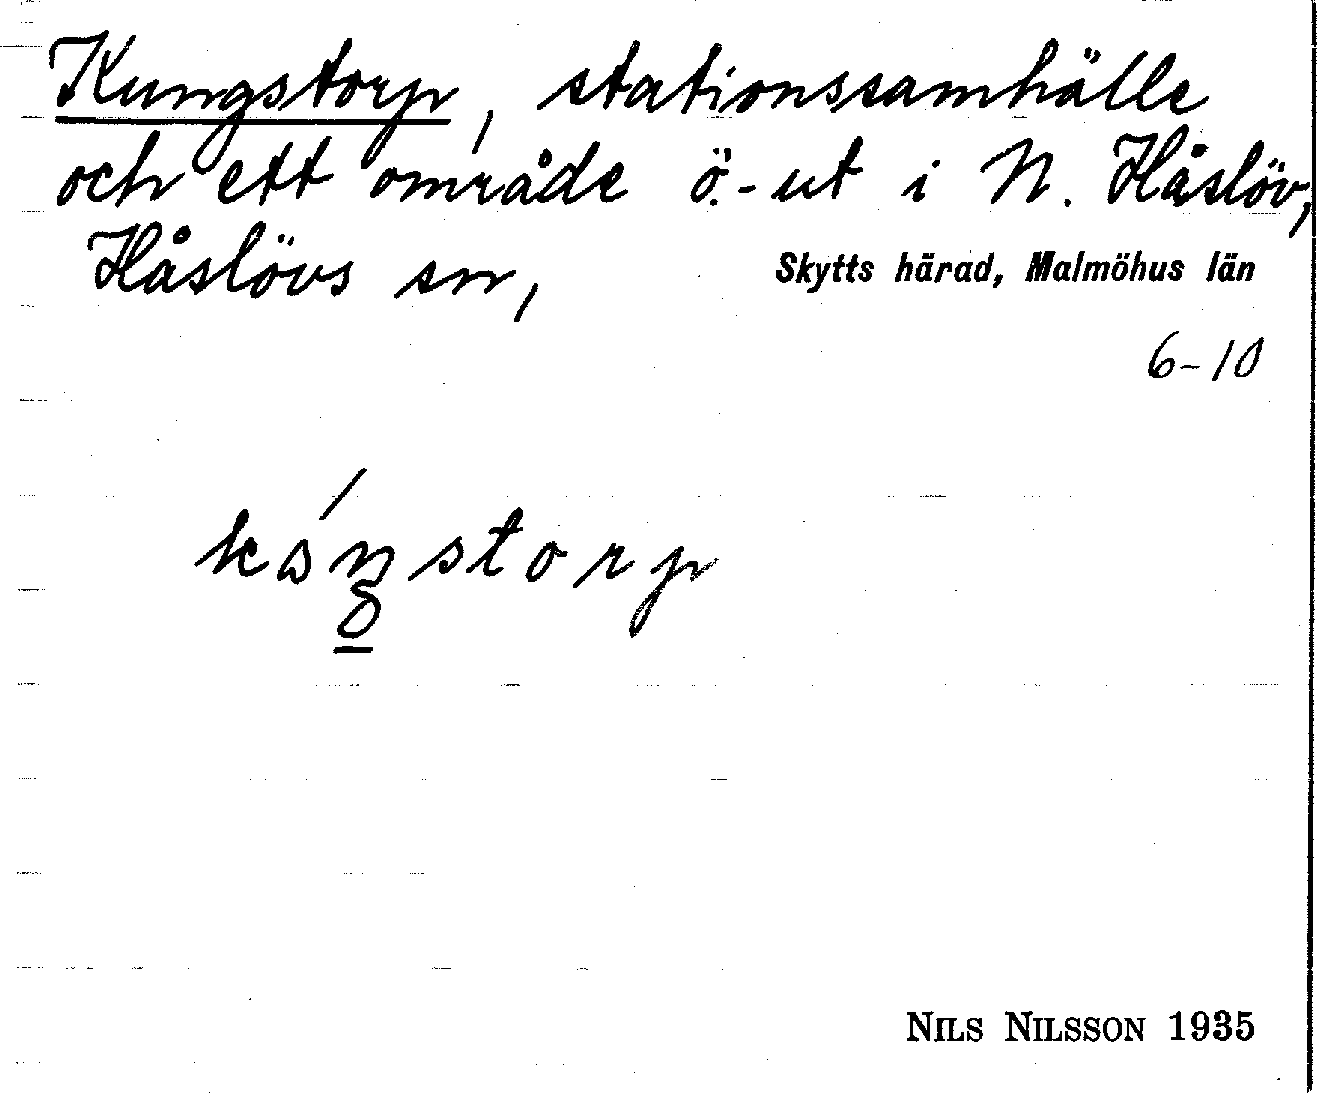 Kungstorp, stationssamhälle
och ett område ö.-ut i N. Håslöv,
Håslövs sn,
Skytts härad, Malmöhus län
6-10
NILS NILSSON 1935